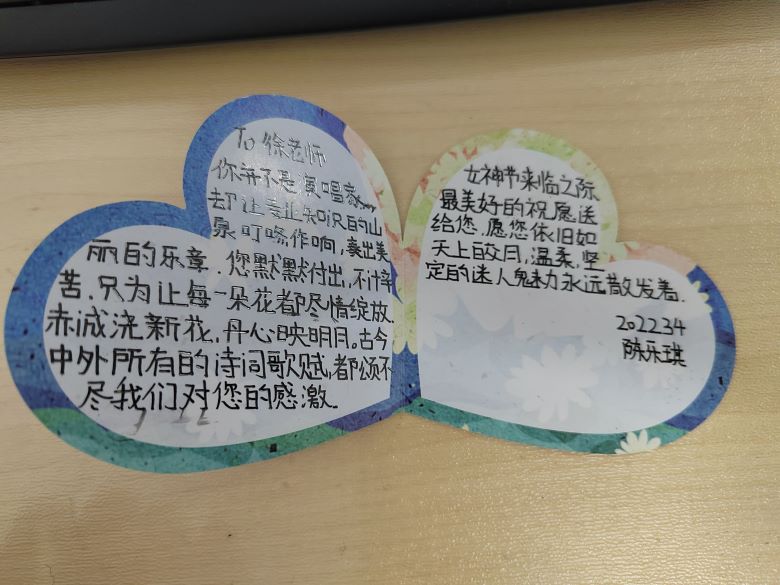 To 徐老师
你并不是演唱家,
却让专业知识的山
泉叮咚作响,奏出美
丽的乐章.您默默付出,不计辛
苦.只为让每一朵花都尽情绽放
赤诚浇新花,丹心映明月。古今
中外所有的诗词歌赋,都颂不
尽我们对您的感激。
女神节来临之际
最美好的祝愿送
给您,愿您依旧如
天上皎月,温柔,坚
定的迷人魅力永远散发着.
2022.3.4
陈乐琪